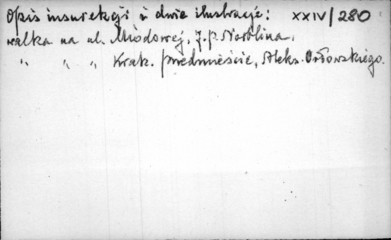 Opis insurekcji i dwie ilustracje: XXIV/280
walka na ul. Miodowej, J. P. Norblina,
" " " Krak. Przedmieście, Aleks. Orłowskiego.